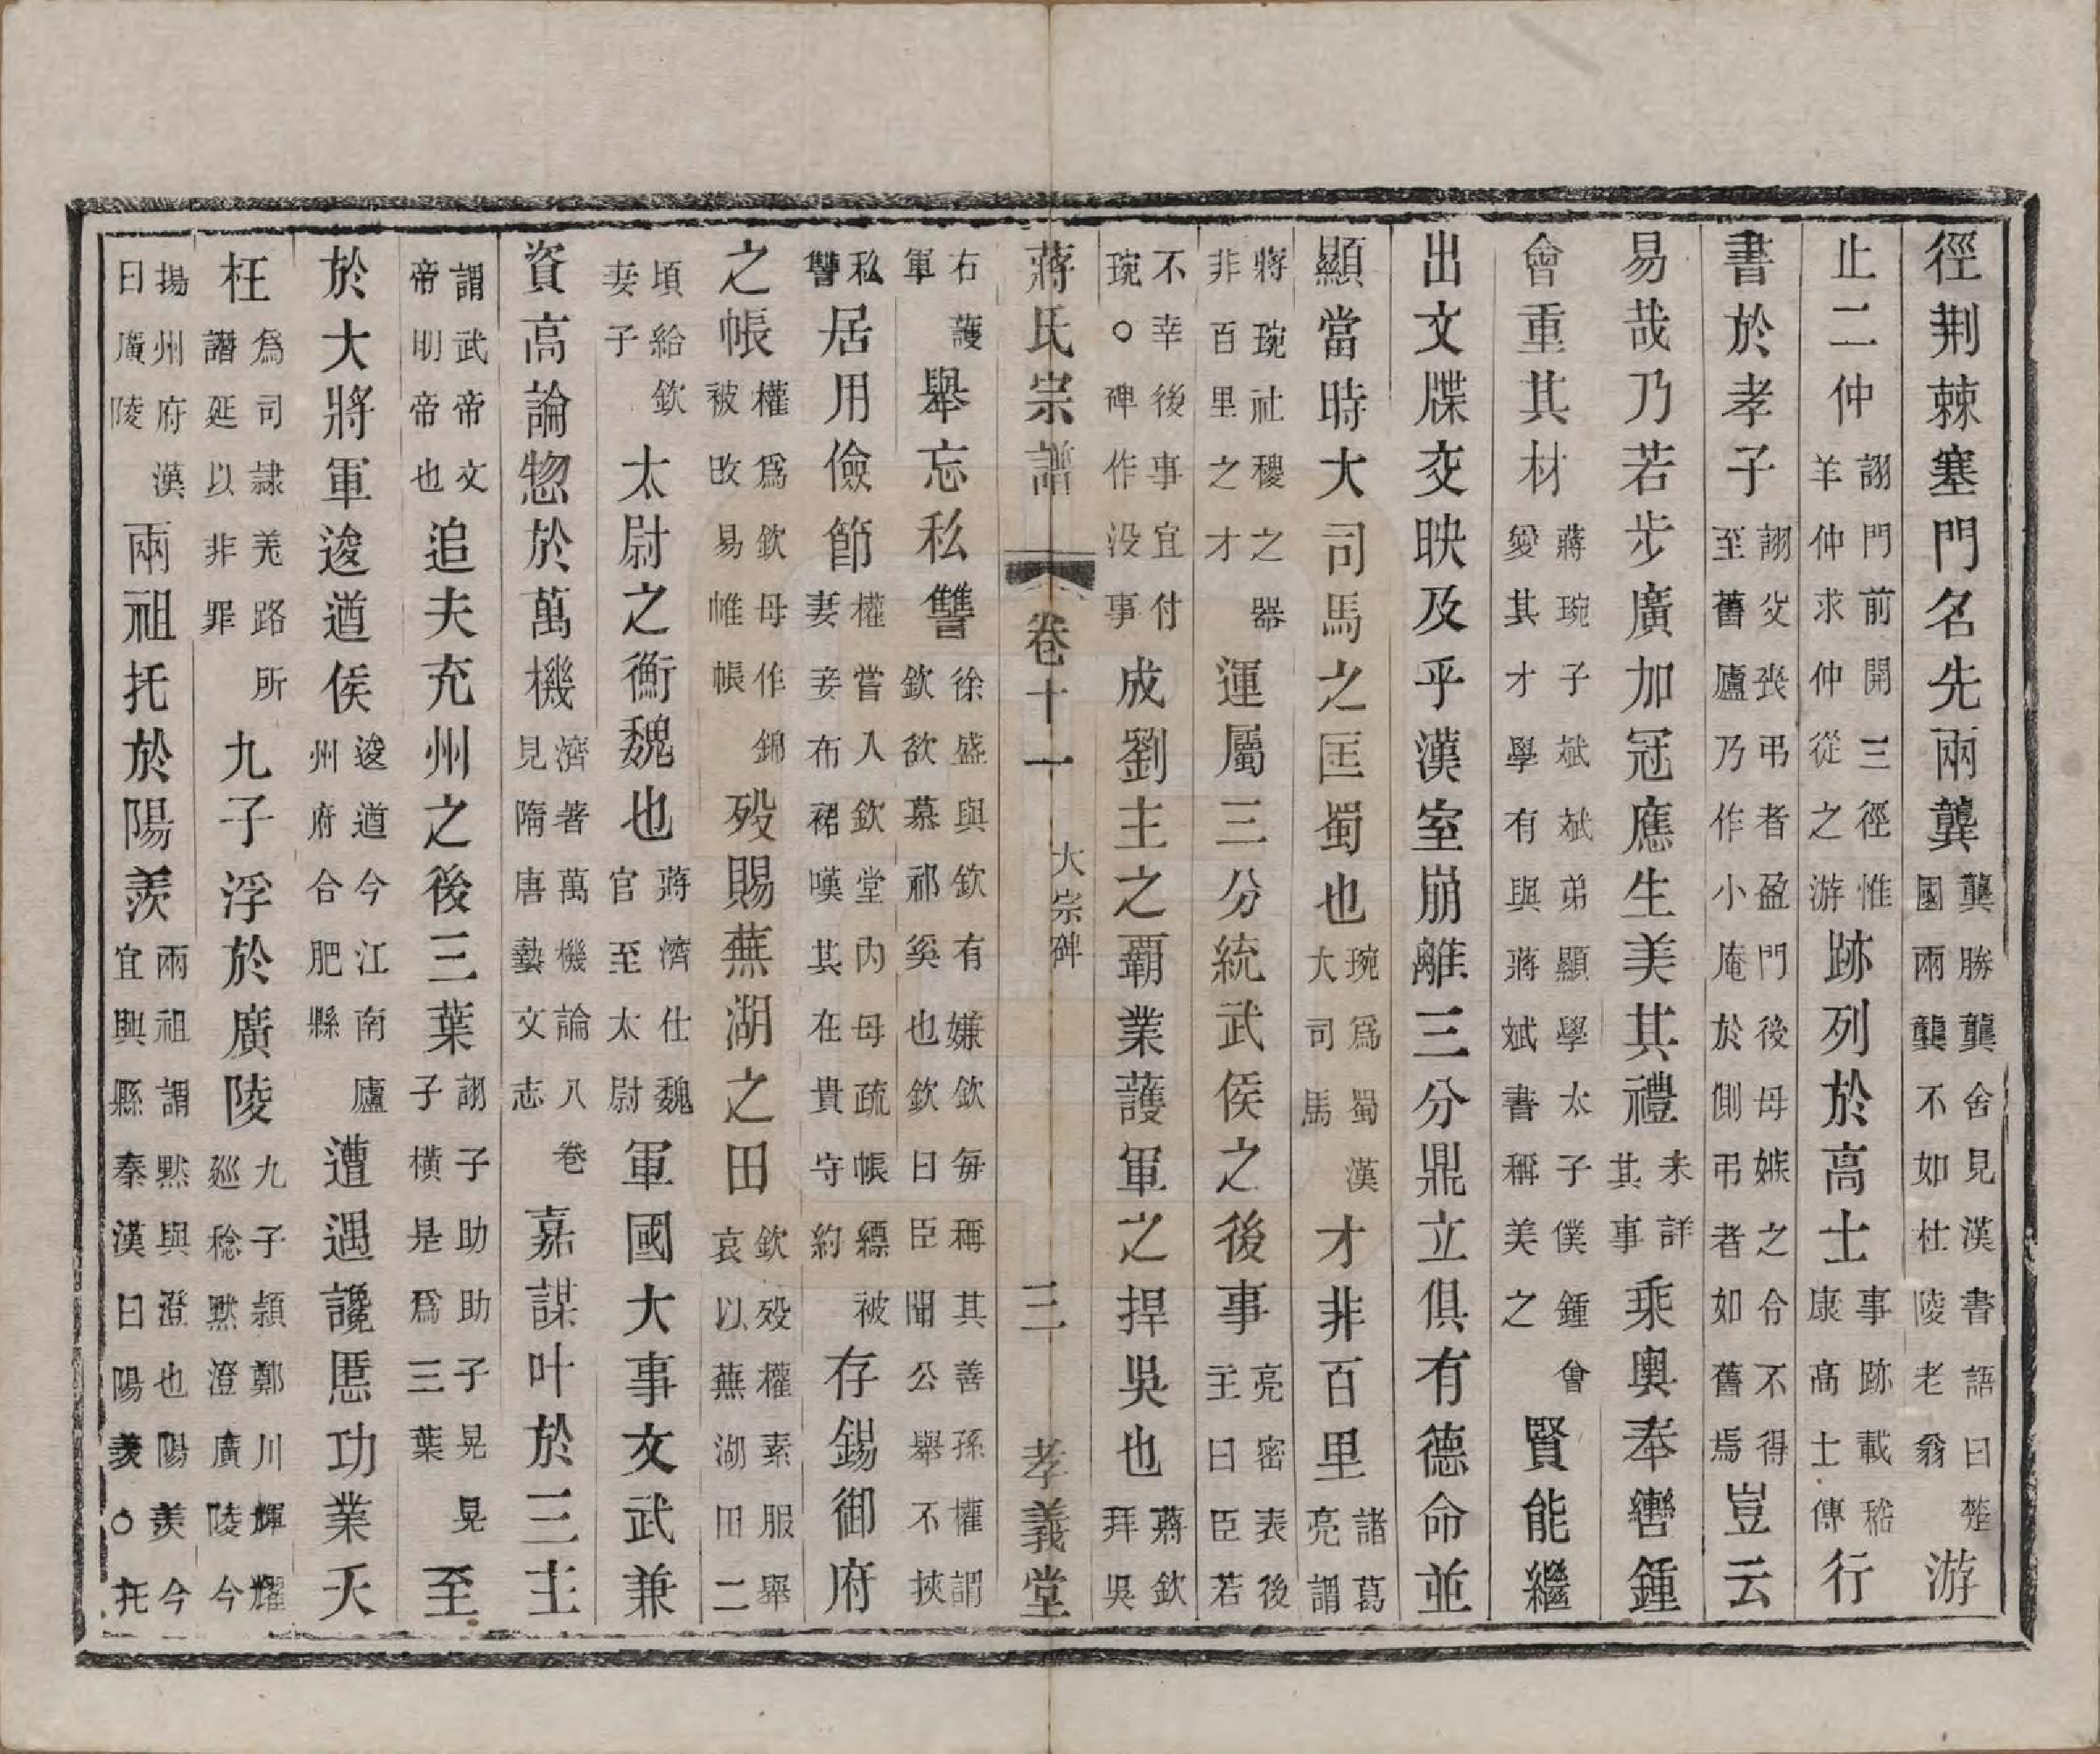 徑荆棘塞門名先兩龔龔勝龔舍見漢書語曰楚國兩龔不如杜陵老翁游
止二仲詡門前開三徑惟羊仲求仲從之游跡列於高士事跡載嵇康高士傳行
書於孝子詡父喪弔者盈門後母嫉之令不得至舊廬乃作小庵於側弔者如舊焉豈云
易哉乃若步廣加冠應生美其禮未詳其事乘輿奉轡鍾
會重其材蔣琬子斌斌弟顯學太子僕鍾會愛其才學有與蔣斌書稱美之賢能繼
出文牒交映及乎漢室崩離三分鼎立俱有德命並
顯當時大司馬之匡蜀也琬爲蜀漢大司馬才非百里諸葛亮謂
蔣琬社稷之器非百里之才運屬三分統武侯之後事亮密表後主曰臣若
不幸後事宜付琬○碑作没事成劉主之覇業護軍之捍吳也蔣欽拜吳
蔣氏宗譜 卷十一 大宗碑 三 孝義堂
右護軍舉忘私讐徐盛與欽有嫌欽每稱其善孫權謂欽欲慕祁奚也欽曰臣聞公舉不挾
私讐居用儉節權嘗入欽堂內母疏帳縹被妻妾布裙嘆其在貴守約存錫御府
之帳權爲欽母作錦被改易帷帳歿賜蕪湖之田欽歿權素服舉哀以蕪湖田二
頃給欽妻子太尉之衡魏也蔣濟仕魏官至太尉軍國大事文武兼
資高論惣於萬機濟著萬機論八卷見隋唐藝文志嘉謀叶於三主
謂武帝文帝明帝也追夫充州之後三葉詡子助助子晃晃子橫是爲三葉至
於大將軍逡遒侯逡遒今江南廬州府合肥縣遭遇讒慝功業夭
枉爲司隷羌路所譖延以非罪九子浮於廣陵九子潁鄭川輝耀巡稔黙澄廣陵今
揚州府漢曰廣陵兩祖托於陽羨兩祖謂黙與澄也陽羨今宜興縣秦漢曰陽羨○托